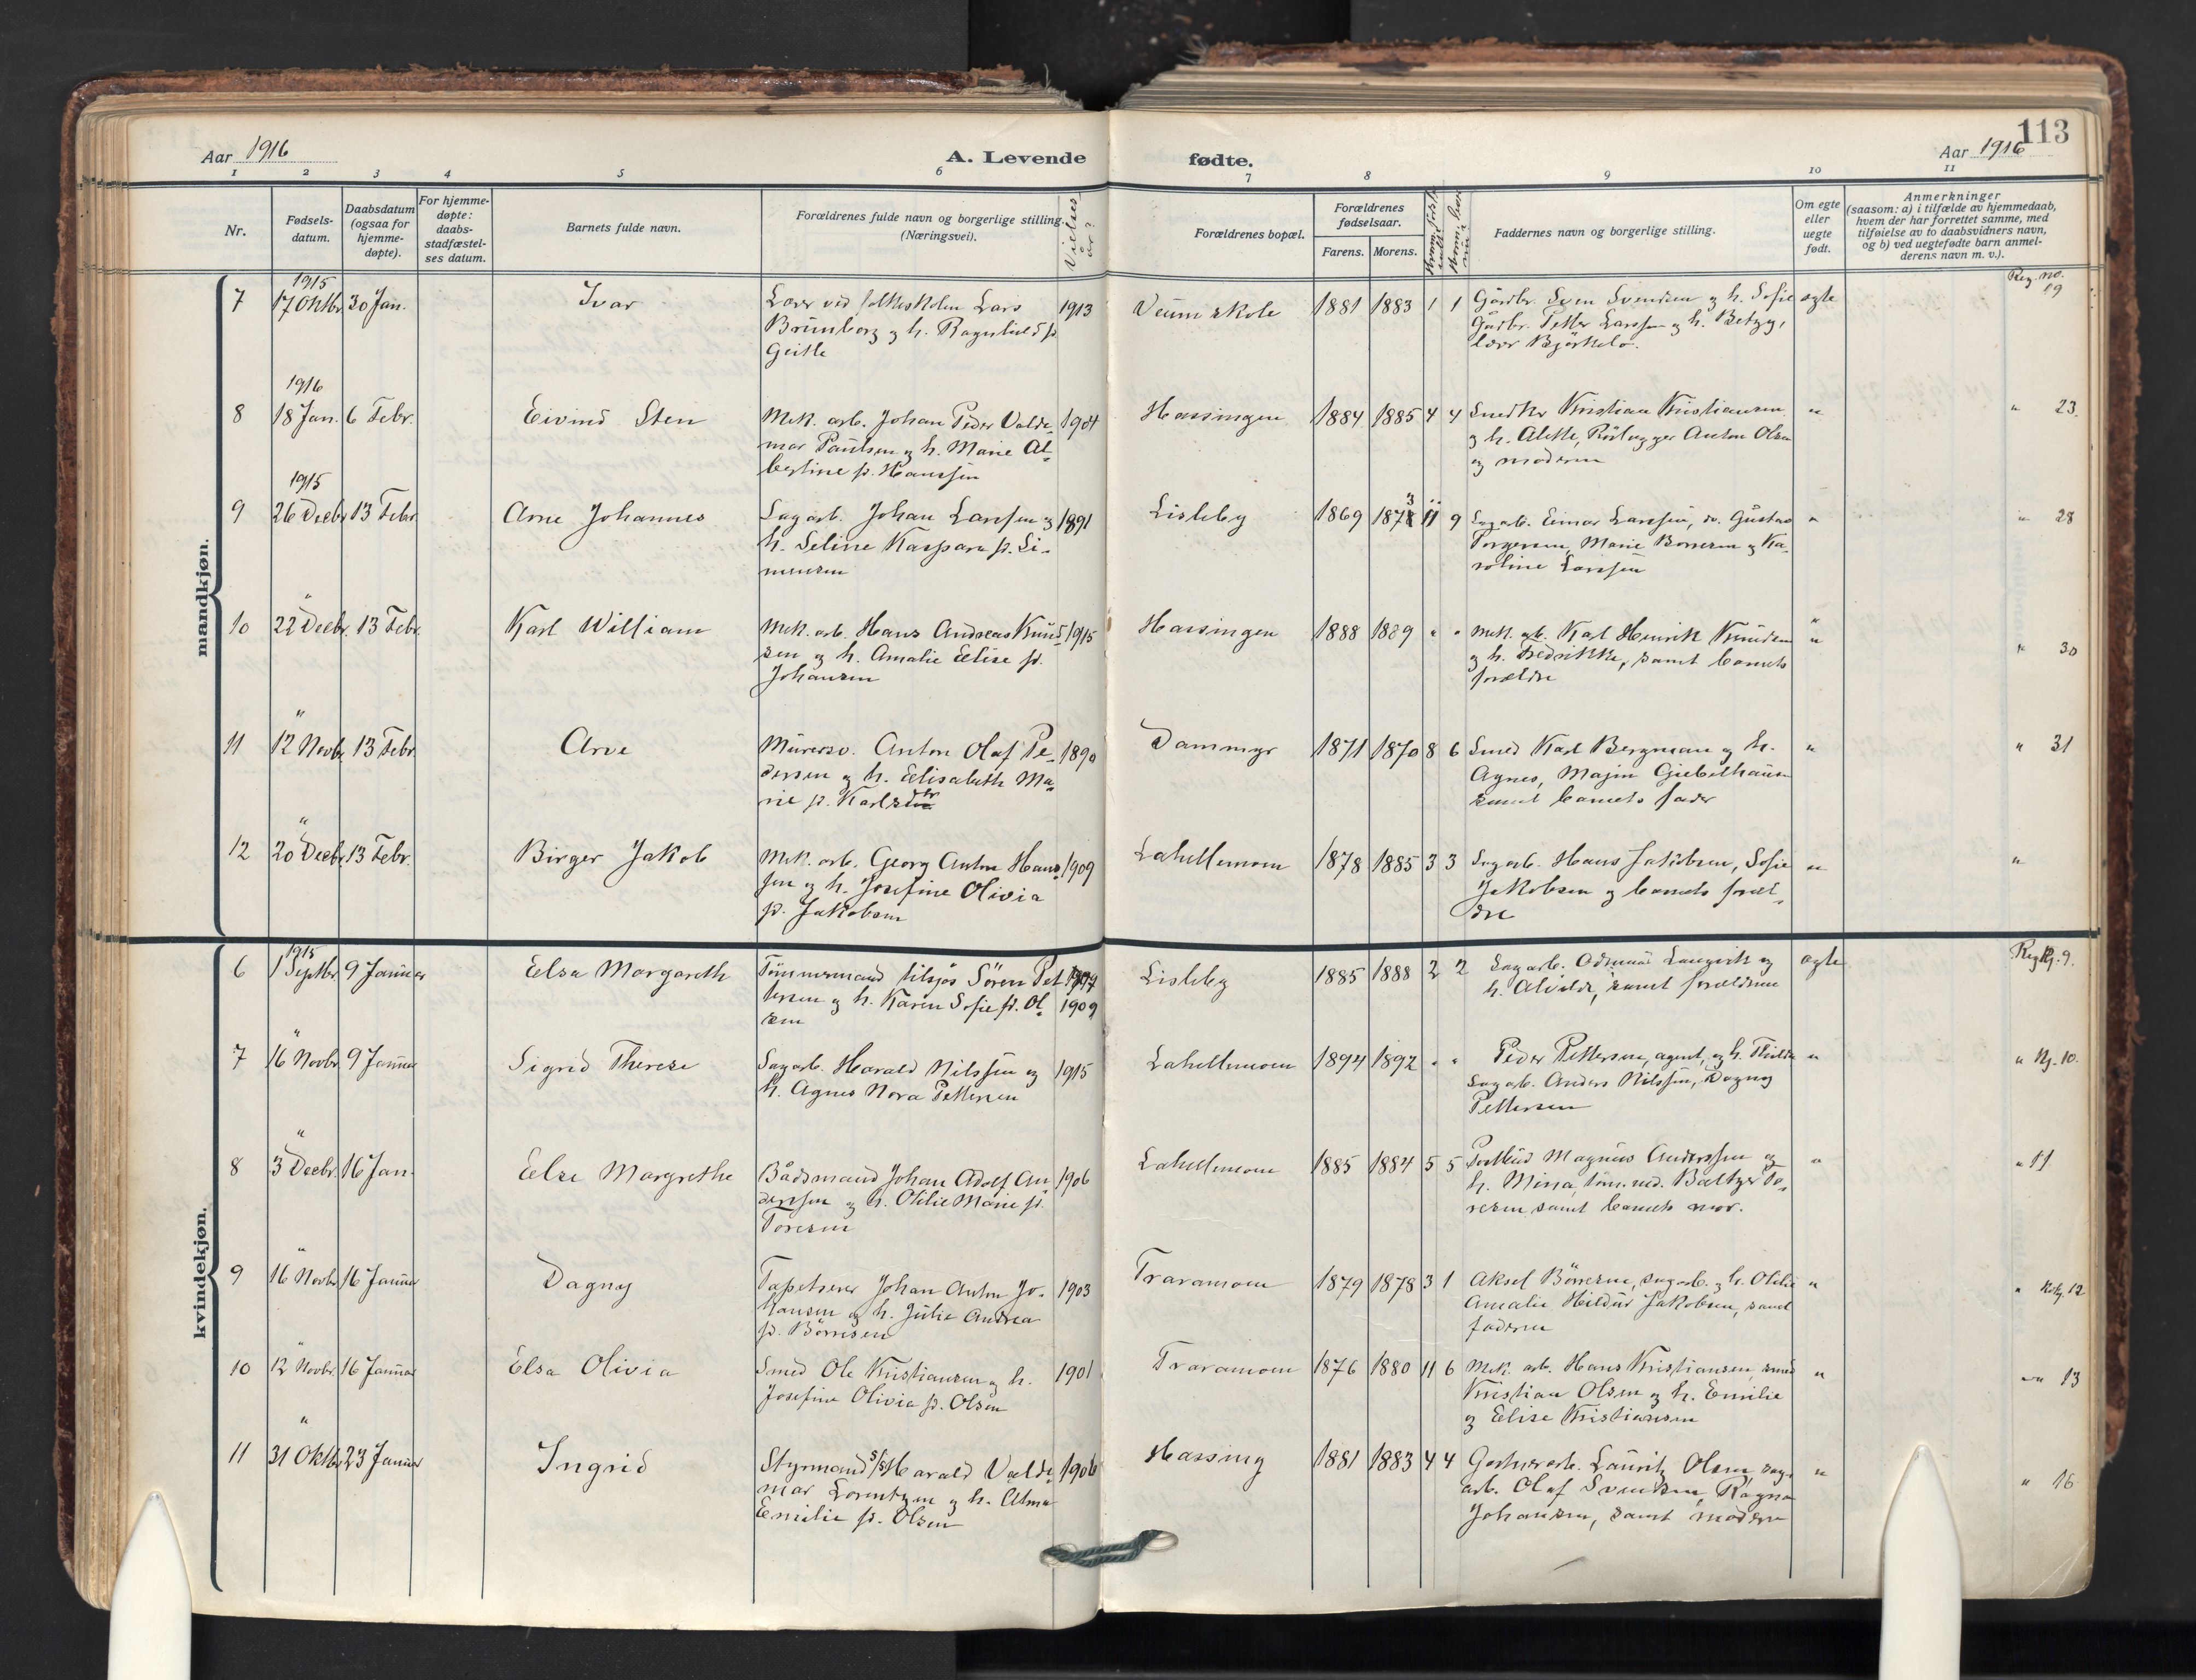 113
Aar 1916
A. Levende fødte.
Aar 1916
1 2 3 4 5 6 7 8 9 10 11
Nr.
Fødsels-
datum.
Daabsdatum
(ogsaa for
hjemme-
døpte).
For hjemme-
døpte:
daabs-
stadfæstel-
ses datum.
Barnets fulde navn.
Forældrenes fulde navn og borgerlige stilling.
(Næringsvei).
Vielses
år?
Forældrenes bopæl.
Forældrenes
fødselsaar.
Farens. Morens.
Faddernes navn og borgerlige stilling.
Om egte
eller
uegte
født.
Anmerkninger
(saasom: a) i tilfælde av hjemmedaab,
hvem der har forrettet samme, med
tilføielse av to daabsvidners navn,
og b) ved uegtefødte barn anmel-
derens navn m. v.).
mandkjøn.
1915 Reg. no.
7 17 Oktbr. 30 Jan. Ivar Lærer ved folkeskolen Lars 1913 Veum skole 1881 1883 1 1 Gårdbr. Sven Svendsen og h. Sofie egte 19
Brunborg og h. Ragnhild f. Gårdbr. Petter Larssen og h. Betzy,
Geitle lærer Bjørkelo.
1916
8 18 Jan. 6 Febr. Eivind Sten Mek. arb. Johan Peder Valde- 1904 Hassingen 1884 1885 4 4 Snedker Kristian Kristiansen " " 23
mar Paulsen og h. Marie Al- og h. Alette, Rørlegger Anton Olsen
bertine f. Hanssen og moderen
1915
9 26 Decbr 13 Febr. Arne Johannes Sagarb. Johan Larssen og 1891 Lisleby 1869 1873 11 9 Sagarb. Einar Larssen, do. Gustav " " 28
h. Seline Kaspara f. Si- Torgersen, Marie Borresen og Ka-
monsen roline Larssen
"
10 22 Decbr. 13 Febr. Karl William Mek. arb. Hans Andreas Knud- 1915 Hassingen 1888 1889 " " Mek. arb. Karl Henrik Knudsen " " 30
sen og h. Amalie Elise f. og h. Fredrikke, samt barnets
Johansen forældre
"
11 12 Novb. 13 Febr. Arve Murersv. Anton Olaf Pe- 1890 Dammyr 1871 1870 8 6 Smed Karl Bergman og h. " " 31
dersen og h. Elisabeth Ma- Agnes, Majin Giebelhausen
rie f. Karlsdtr samt barnets fader
"
12 20 Decbr. 13 Febr. Birger Jakob Mek. arb. Georg Anton Hans- 1909 Lahellemoen 1878 1885 3 3 Sagarb. Hans Jakobsen, Sofie " "
sen og h. Josefine Olivia Jakobsen og barnets foræl-
f. Jakobsen dre
kvindekjøn.
1915
6 1 Septbr. 9 Januar Elsa Margareth Tømmermand tilsjøs Søren Pet- Lisleby 1885 1888 2 2 Sagarb. egte Reg. 9.
tersen og h. Karen Sofie f. Ol- 1909 h. Alvilde, samt forældrene
sen
"
7 16 Novbr. 9 Januar Sigrid Therese Sagarb. Harald Nilssen og 1915 Lahellemoen 1894 1892 " " Peder Pettersen, agent, og h. " " 10.
h. Agnes Nora Pettersen Sagarb. Anders Nilssen, Dagny
Pettersen
"
8 3 Decbr. 16 Jan. Else Margrethe Bådsmand Johan Adolf An- 1906 Lahellemoen 1885 1884 5 5 Postbud Magnus Anderssen og " " 11
derssen og h. Otilie Marie f. h. Mina, tøm.md. Baltzer To-
Toresen resen samt barnets mor.
"
9 16 Novbr. 16 Januar Dagny Tapetserer Johan Anton Jo- 1903 Traramoen 1879 1878 3 1 Aksel Børresen, sagarb. og h. Otilie " " 12
hansen og h. Julie Andrea Amalie Hildur Jakobsen, samt
f. Børresen faderen
"
10 12 Novbr. 16 Januar Elsa Olivia Smed Ole Kristiansen og h. 1901 Traramoen 1876 1880 11 6 Mek. arb. Hans Kristiansen, smed " " 13
Josefine Olivia f. Olsen Kristian Olsen og h. Emilie
og Elise Kristiansen
"
11 31 Oktbr 23 Januar Ingrid Styrmand s/s Harald Valde- 1906 Hassing 1881 1883 4 4 Lauritz Olsen, sag- " " 16
mar Lorentzen og h. Alma arb. Olaf Svendsen, Ragna
Emilie f. Olsen Johansen, samt moderen